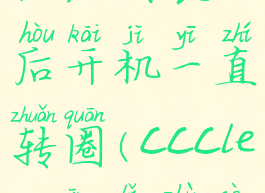 hòu kāi jī yī zhí
后开机一直
zhuǎn quān
转圈(CCCle